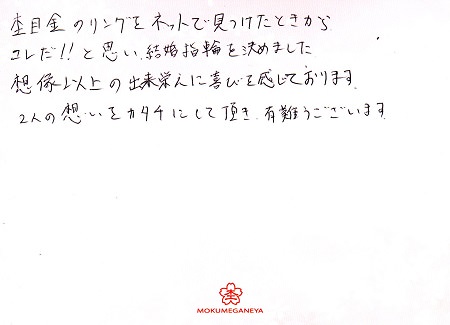 杢目金のリングをネットで見つけたときから
コレだ!!と思い、結婚指輪を決めました
想像以上の出来栄えに喜びを感じております。
2人の想いをカタチにして頂き、有難うございます。
杢
MOKUMEGANEYA